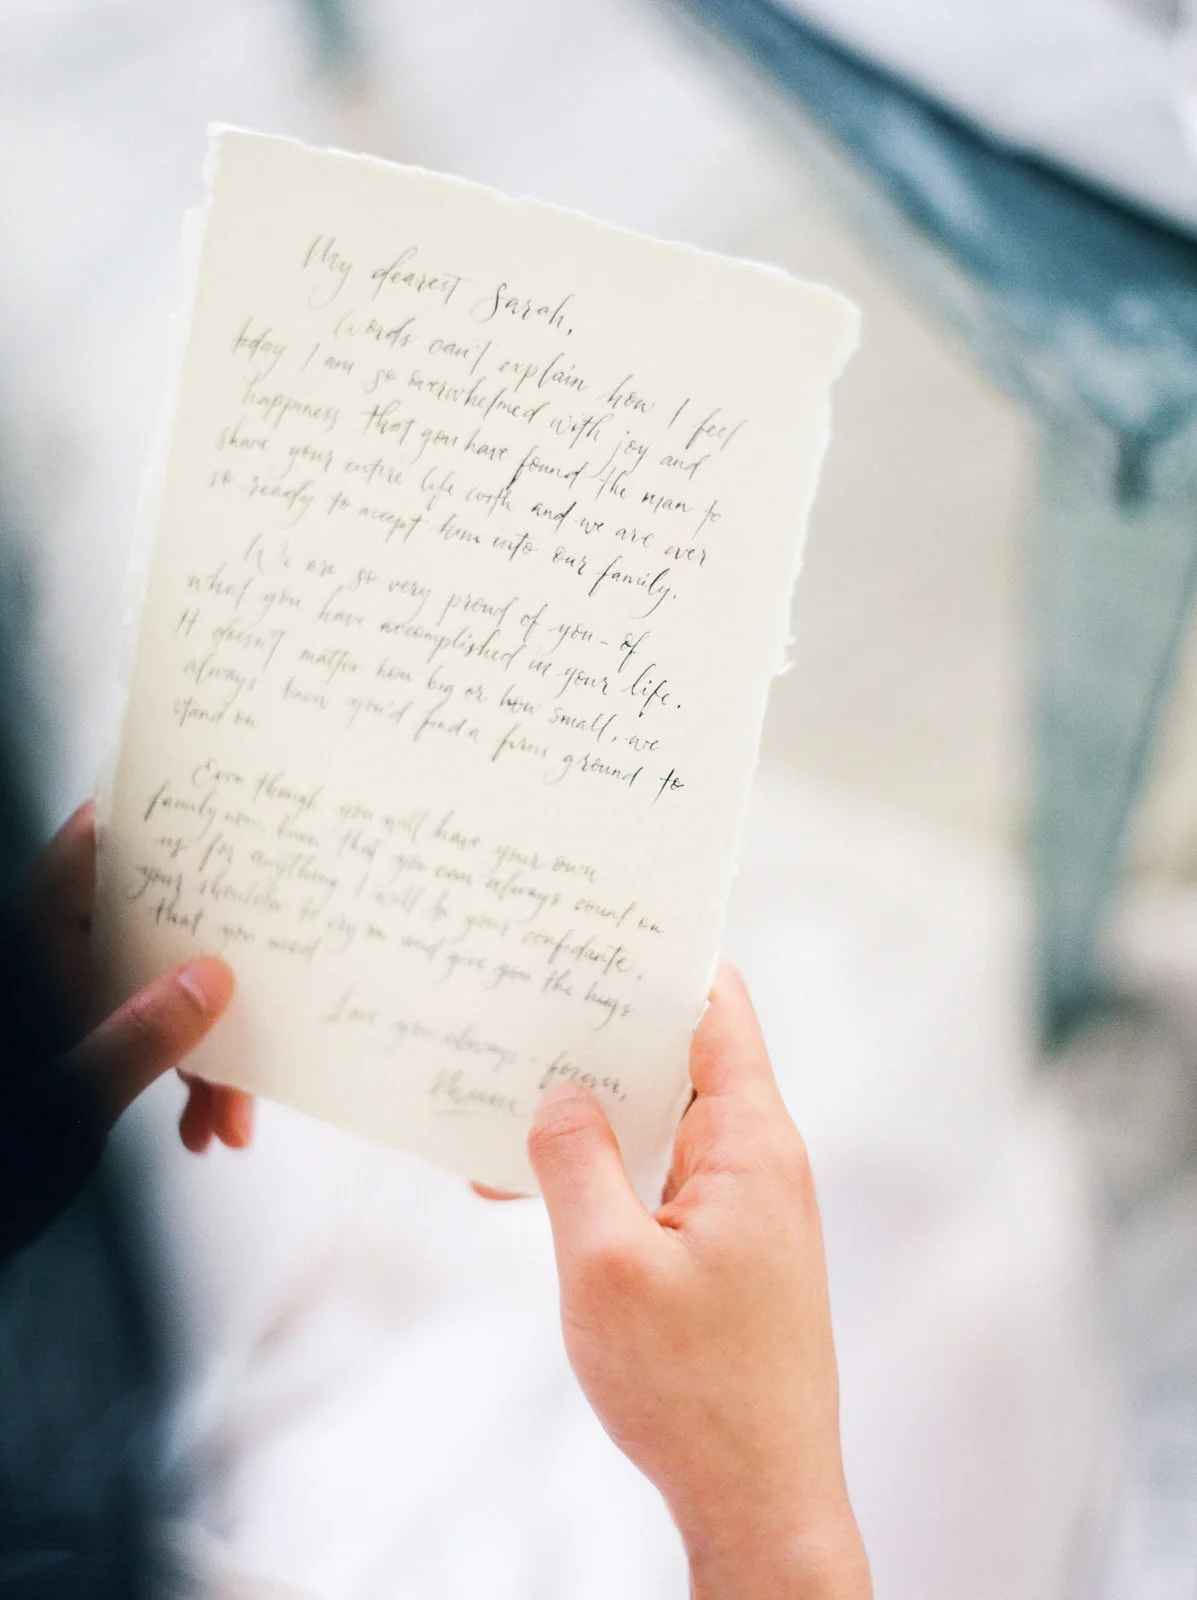 My dearest Sarah,
Words can't explain how I feel
today I am so overwhelmed with joy and
happiness that you have found the man to
share your entire life with and we are over
so ready to accept him into our family.
We are so very proud of you - of
what you have accomplished in your life.
It doesn't matter how big or how small, we
always knew you'd find a firm ground to
stand on
Even though you will have your own
family now, know that you can always count on
us for anything I will be your confidante,
your shoulder to cry on and give you the hugs
that you need
Love you always - forever,